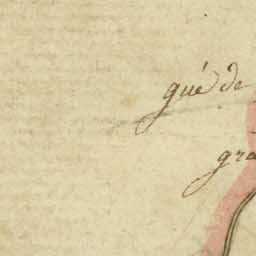 gué de
gra